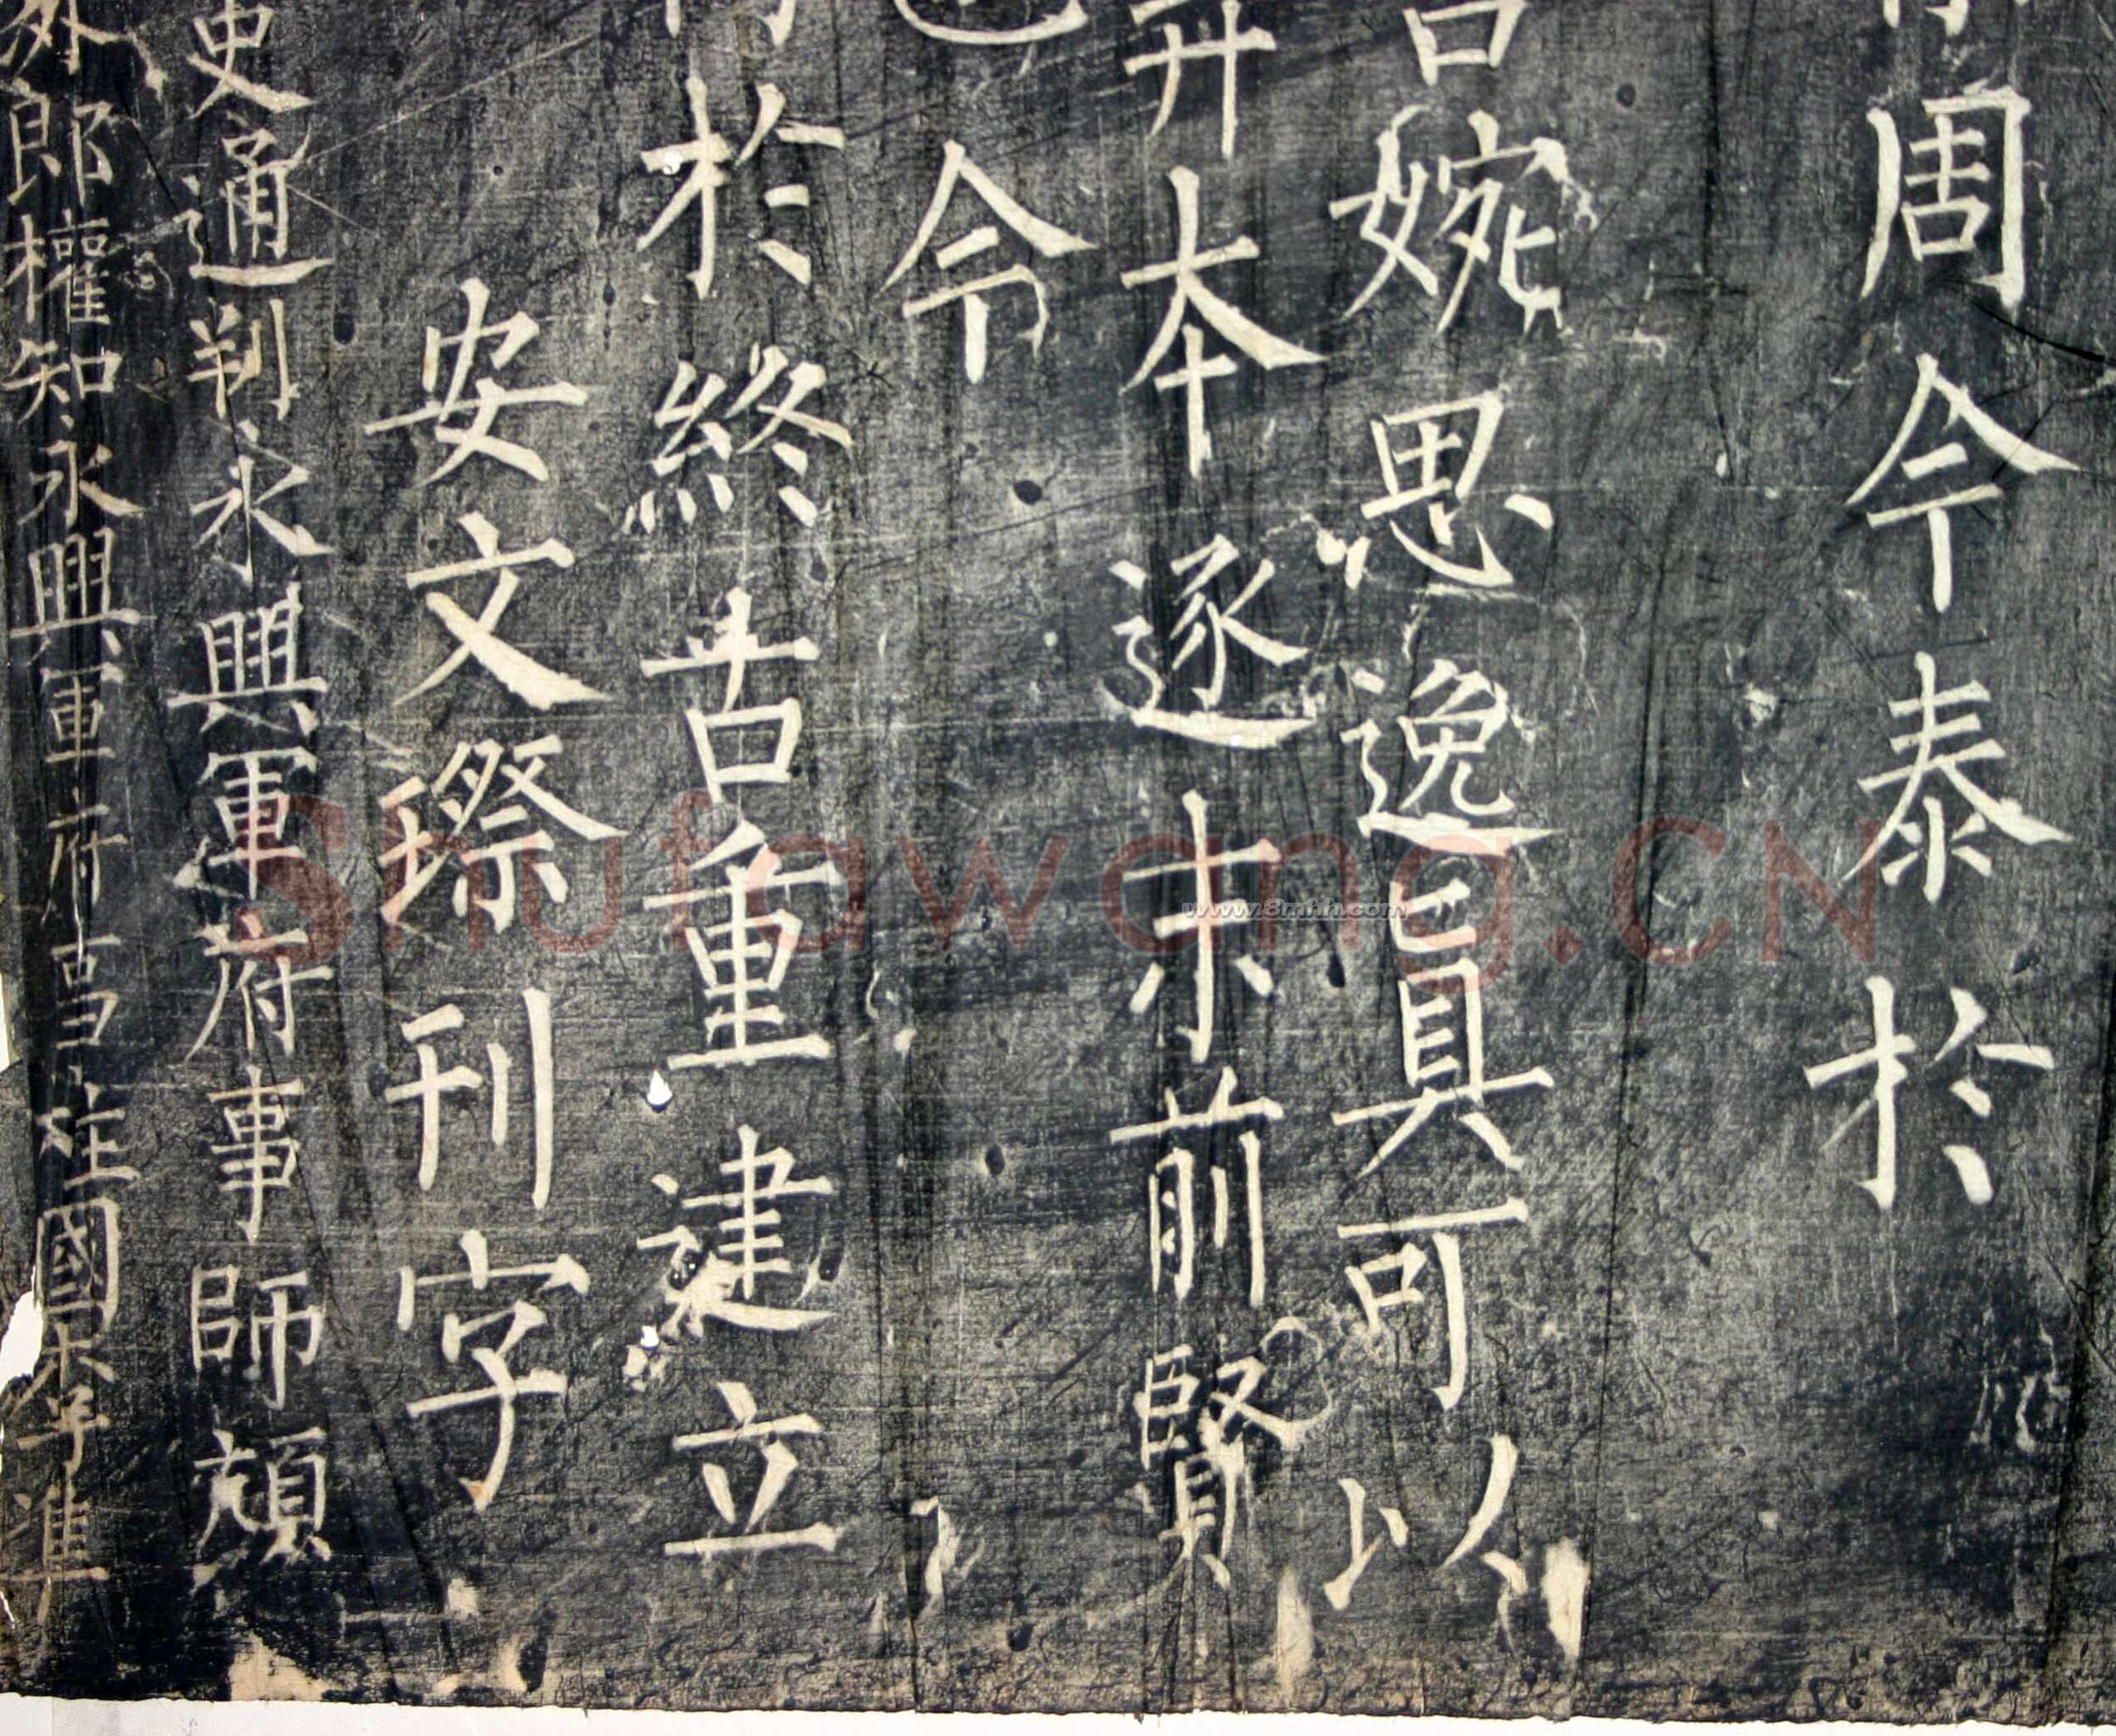 周今泰於
婉思逸眞可以
升本逐未前賢
令
於終古重建立
安文璨刊字
史通判永興軍府事師頏
外郎權知永興軍府事柱國宋準
Shufawang.CN
www.8mhh.com